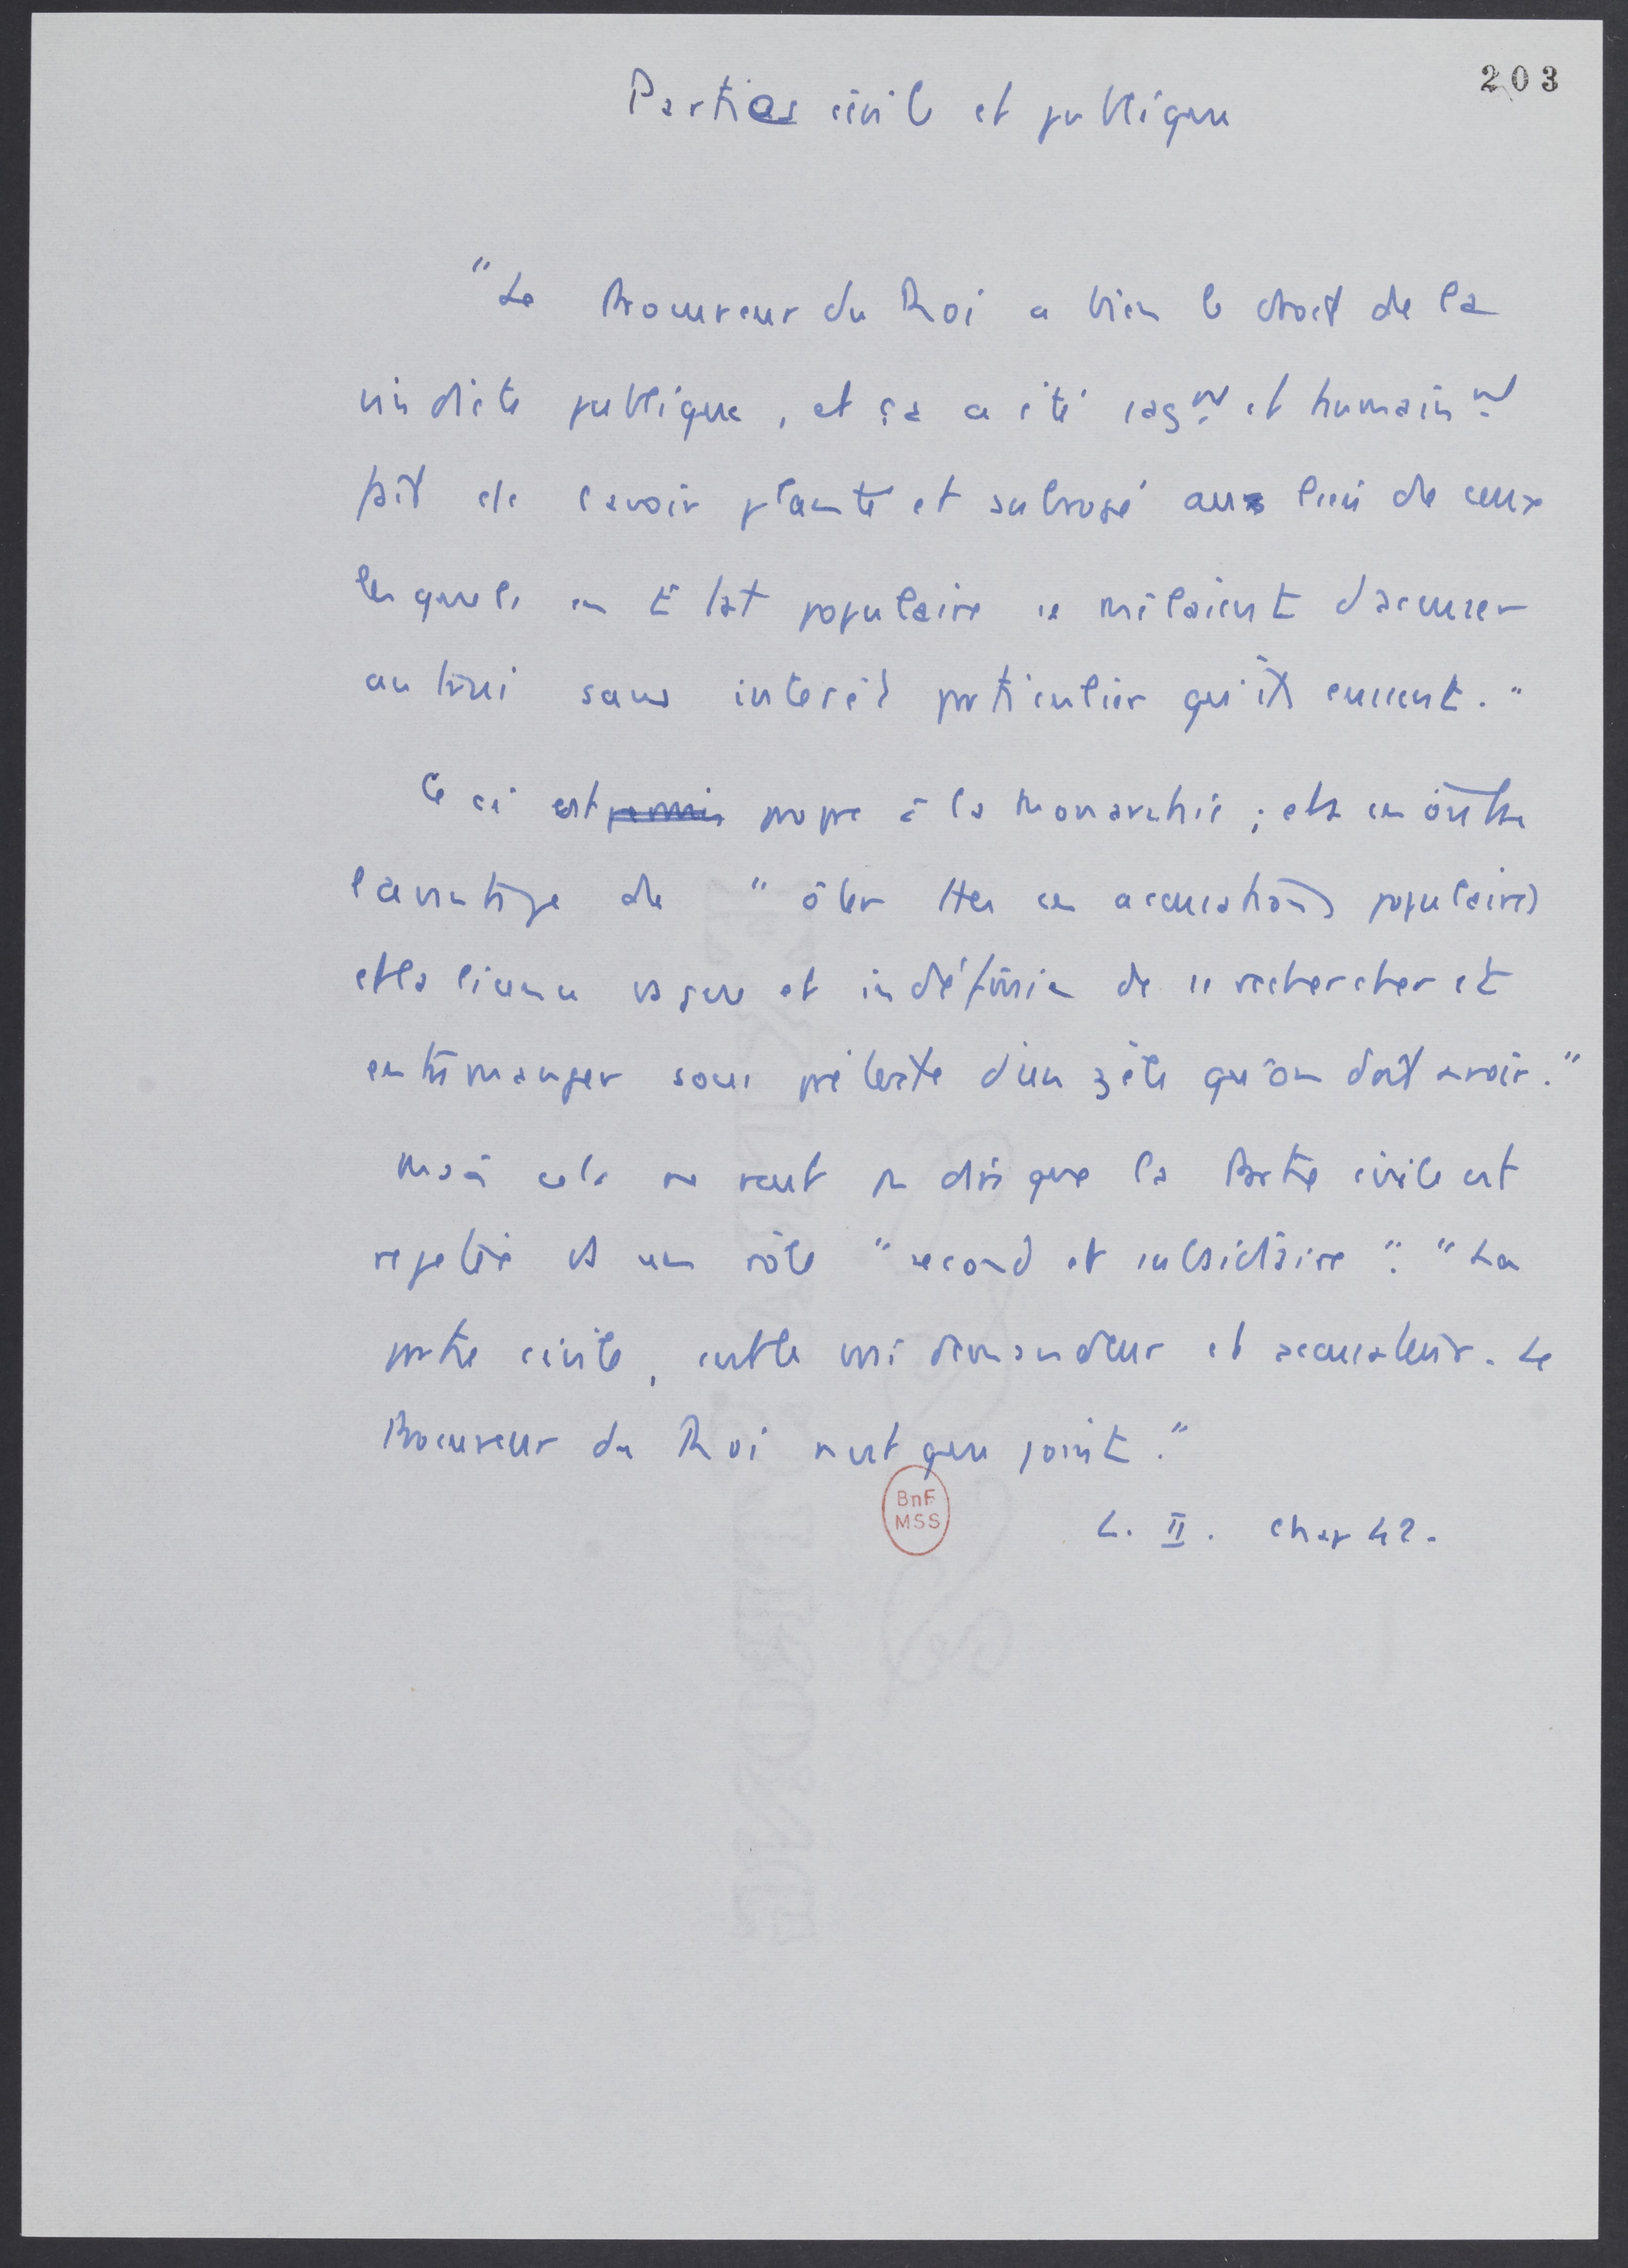 203
Parties civile et publique
"Le Procureur du Roi a bien le droit de la
vindicte publique, et ça a été sagnt et humainnt
fait de l'avoir planté et subrogé au lieu de ceux
lesquels en Etat populaire se mêlaient d'accuser
autrui sans intérêt particulier qu'ils eussent."
Ceci est permis propre à la Monarchie ; et a en outre
l'avantage de "ôter ttes ces accusations populaires
et la licence vague et indéfinie de se rechercher et
entremanger sous prétexte d'un zèle qu'on doit avoir."
Mais cela ne veut pas dire que la Partie civile est
rejetée ds un rôle "second et subsidiaire". "La
partie civile, est le vrai demandeur et accusateur. Le
Procureur du Roi n'est que joint."
BnF
MSS
L. II. chap 42.